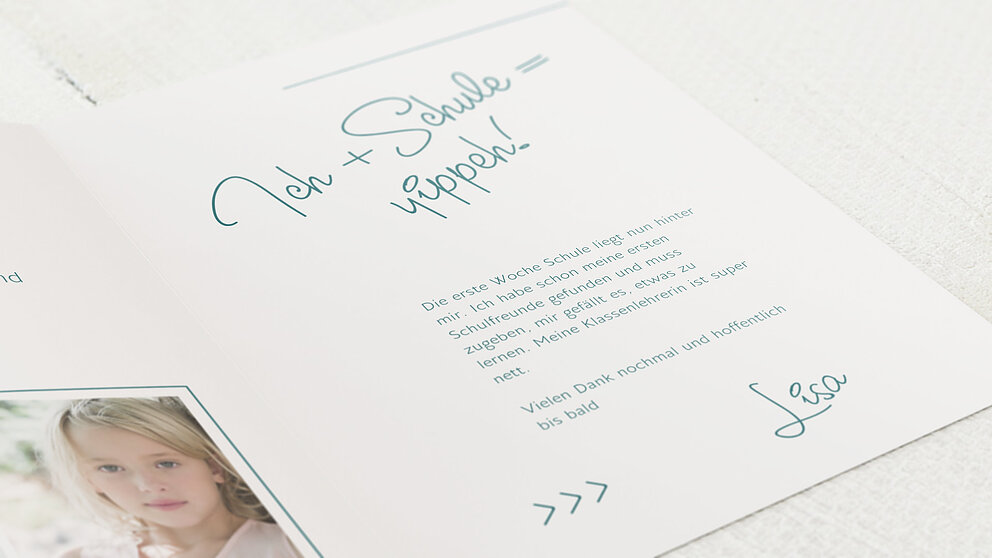 Ich + Schule =
yippeh!
Die erste Woche Schule liegt nun hinter
mir. Ich habe schon meine ersten
Schulfreunde gefunden und muss
zugeben, mir gefällt es, etwas zu
lernen. Meine Klassenlehrerin ist super
nett.
Vielen Dank nochmal und hoffentlich
bis bald
Lisa
>>>